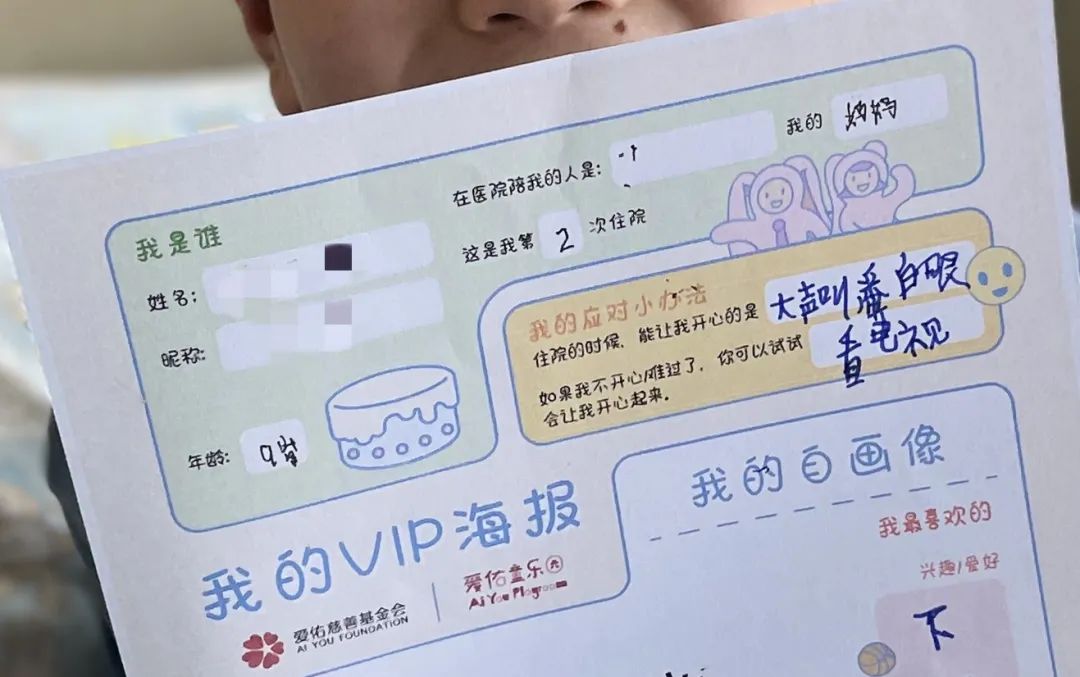 在医院陪我的人是：
我的 妈妈
我是谁
这是我第 2 次住院
姓名：
昵称：
年龄： 9岁
我的应对小办法
住院的时候，能让我开心的是 大声叫 翻白眼
如果我不开心/难过了，你可以试试 看电视
会让我开心起来。
我的VIP海报
爱佑慈善基金会
AI YOU FOUNDATION
爱佑童乐
Ai You Playroom
我的自画像
我最喜欢的
兴趣/爱好
下